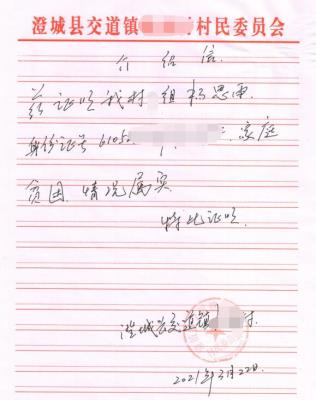 澄城县交道镇 村民委员会
介绍信
兹证明我村 组 思雨
身份证号6105 家庭
贫困，情况属实
特此证明
澄城县交道镇 村
2021年3月22日